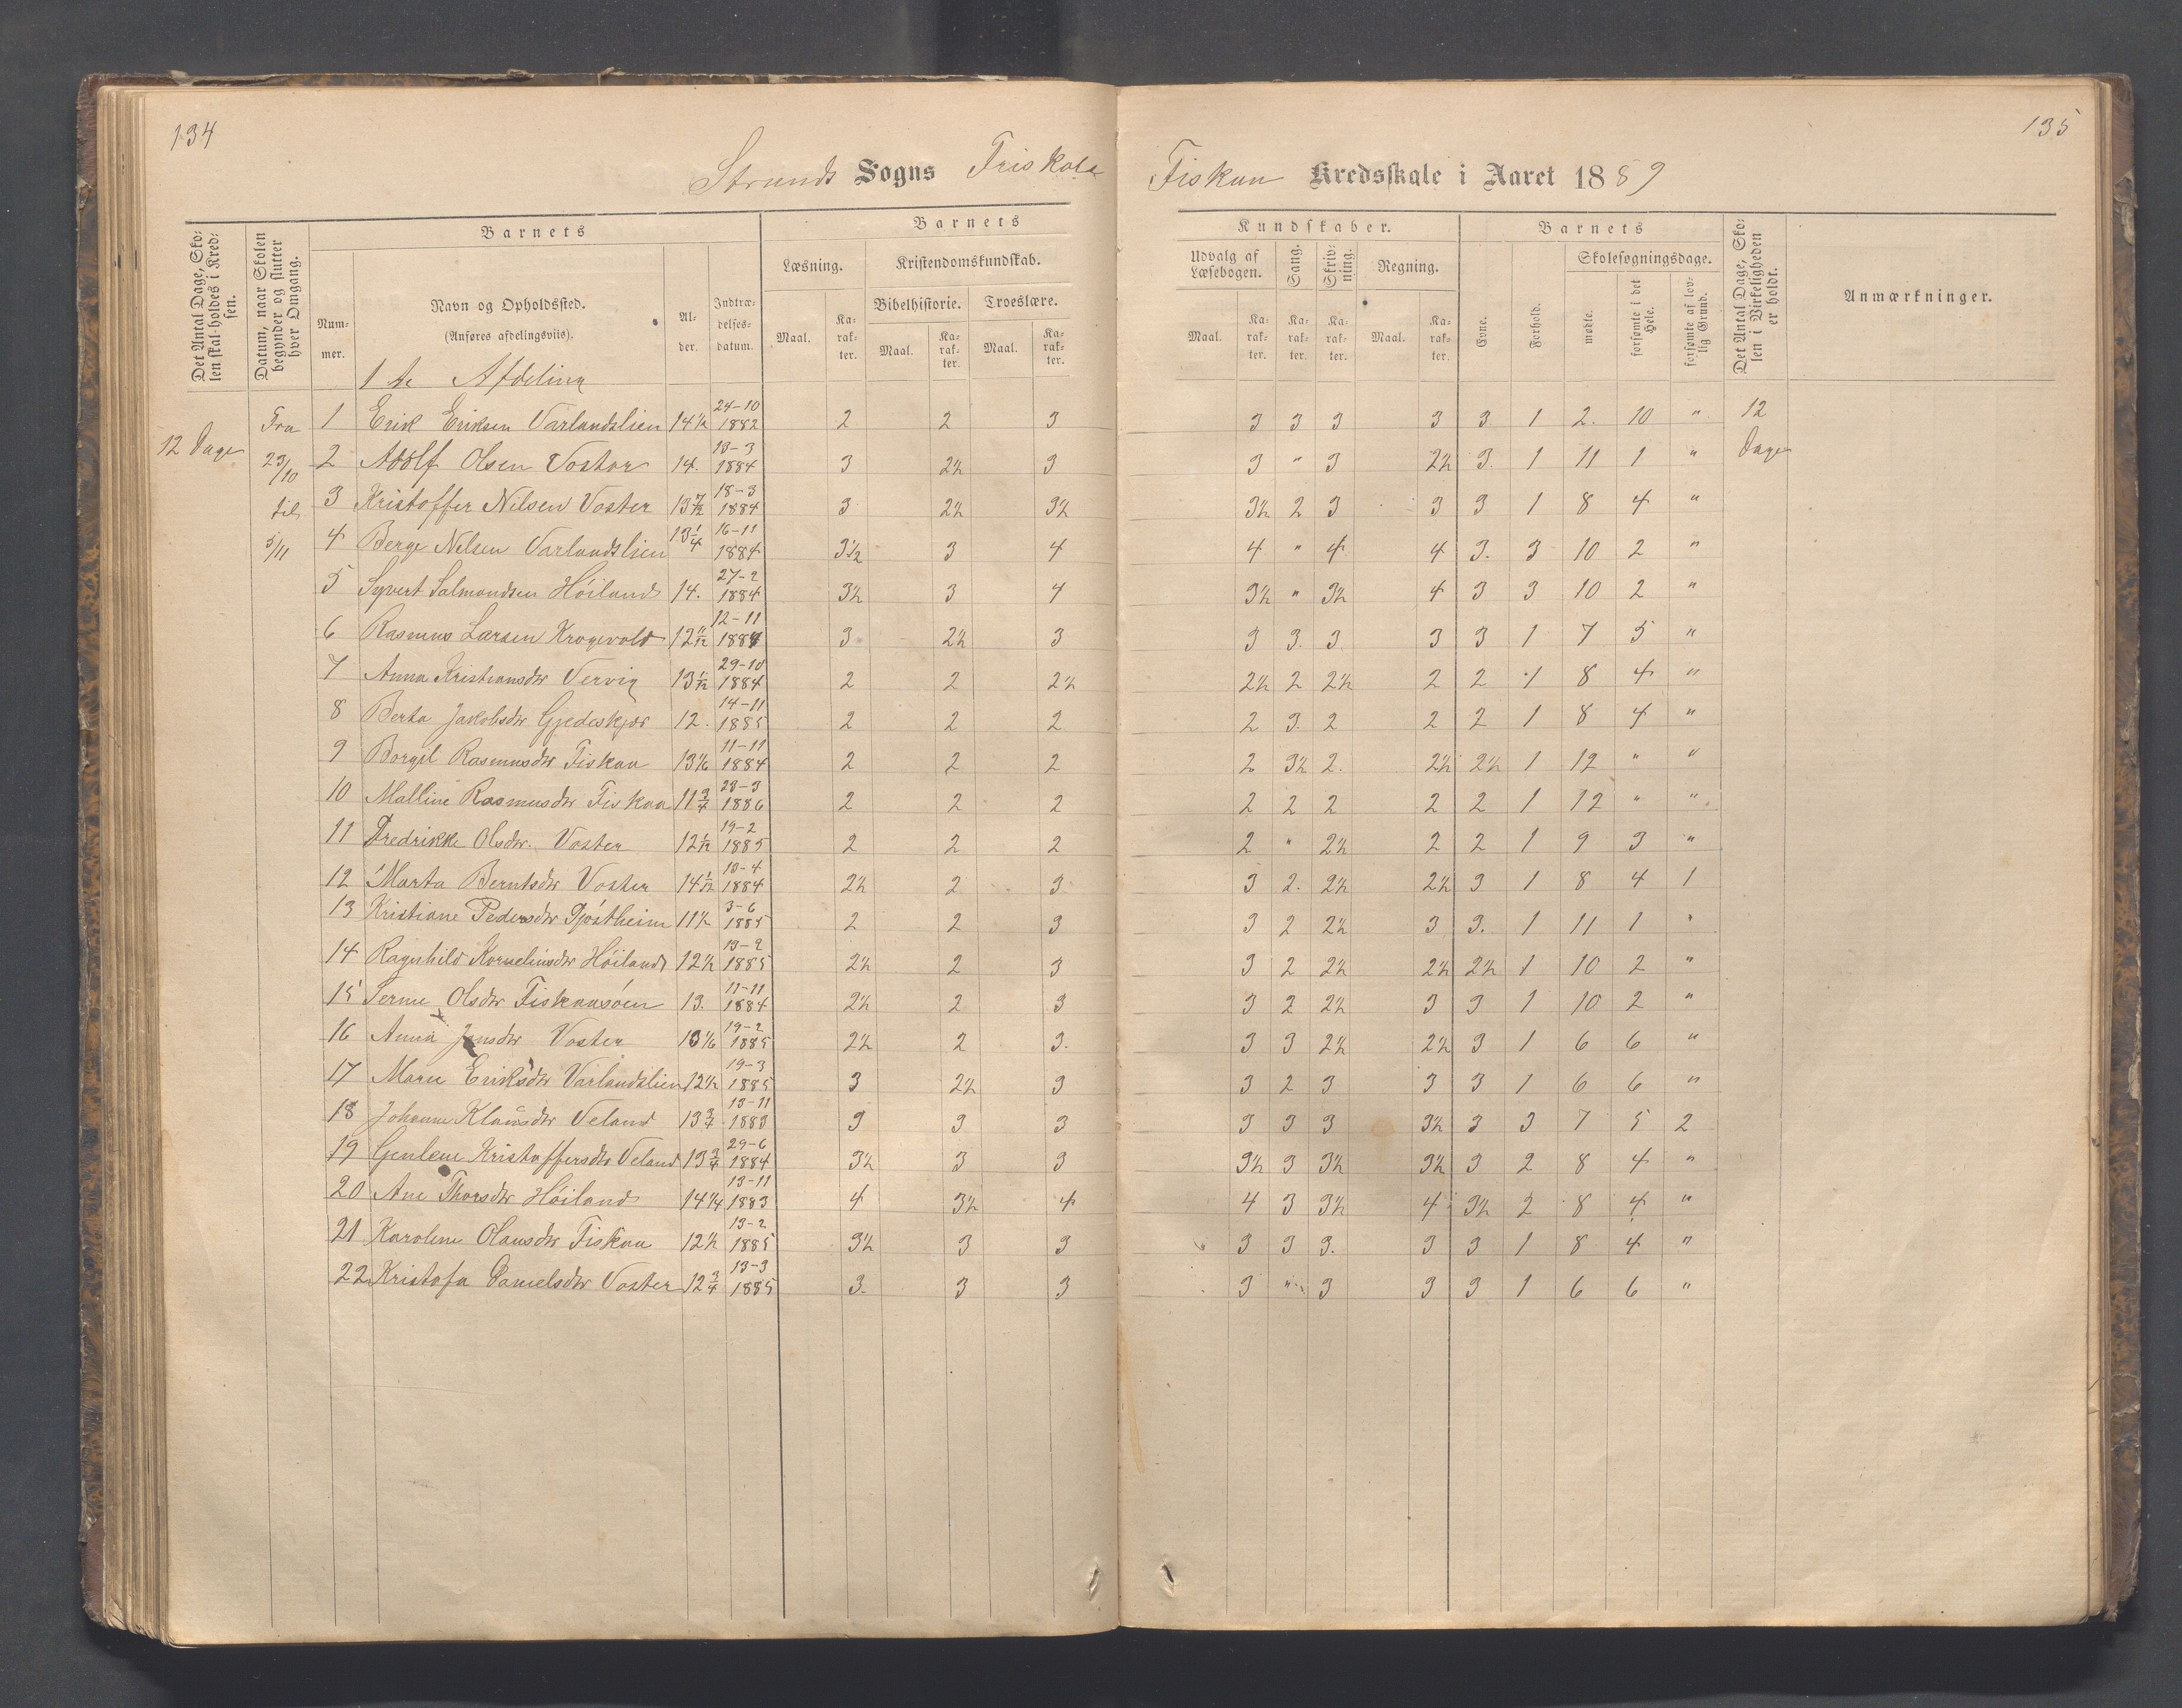 134
135
Strands Sogns Friskole
Fiskaa Kredsskole i Aaret 1889
Det Antal Dage, Skolen skal holdes i Kredsen.
Datum, naar Skolen begynder og slutter hver Omgang.
Barnets
Nummer.
Navn og Opholdssted.
(Anføres afdelingsviis).
Alder.
Indtrædelsesdatum.
Barnets
Læsning.
Maal.
Karakter.
Kristendomskundskab.
Bibelhistorie.
Maal.
Karakter.
Troeslære.
Maal.
Karakter.
Kundskaber.
Udvalg af Læsebogen.
Maal.
Karakter.
Sang.
Karakter.
Skrivning.
Karakter.
Regning.
Maal.
Karakter.
Barnets
Evne.
Forhold.
Skolesøgningsdage.
mødte.
forsømte i det Hele.
forsømte af lovlig Grund.
Det Antal Dage, Skolen i Virkeligheden er holdt.
Anmærkninger.
1te Afdeling
12 Dage
Fra 23/10 til 5/11
12 Dage
1 Erik Eriksen Varlandslien 14½ 24-10 1882 2 2 3 3 3 3 3 3 1 2. 10 "
2 Adolf Olsen Voster 14. 13-3 1884 3 2½ 3 3 " 3 2½ 3. 1 11 1 "
3 Kristoffer Nilsen Voster 13 7/12 18-3 1884 3 2½ 3½ 3½ 2 3 3 3 1 8 4 "
4 Berge Nilsen Varlandslien 13¼ 16-11 1884 3½ 3 4 4 " 4 4 3. 3 10 2 "
5 Syvert Salmondsen Höiland 14. 27-2 1884 3½ 3 4 3½ " 3½ 4 3 3 10 2 "
6 Rasmus Larsen Krogevold 12 11/12 12-11 1884 3 2½ 3 3 3. 3 3 3 1 7 5 "
7 Anna Kristiansdtr Vervig 13 1/12 29-10 1884 2 2 2½ 2½ 2 2½ 2 2 1 8 4 "
8 Berta Jakobsdtr Gjedeskjær 12. 14-11 1885 2 2 2 2 3. 2 2 2 1 8 4 "
9 Borgil Rasmusdtr Fiskaa 13 1/6 11-11 1884 2 2 2 2 3½ 2. 2½ 2½ 1 12 " "
10 Malline Rasmusdtr Fiskaa 11¾ 28-3 1886 2 2 2 2 2 2 2 2 1 12 " "
11 Fredrikke Olsdtr. Voster 12 1/12 19-2 1885 2 2 2 2 " 2½ 2 2 1 9 3 "
12 Marta Berntsdtr Voster 14 1/12 10-4 1884 2½ 2 3 3 2. 2½ 2½ 3 1 8 4 1
13 Kristiane Pedersdtr Tjöstheim 11½ 3-6 1885 2 2 3 3 2 2½ 3 3. 1 11 1 "
14 Ragnhild Korneliusdtr Höiland 12½ 13-2 1885 2½ 2 3 3 2 2½ 2½ 2½ 1 10 2 "
15 Serine Olsdtr Fiskaasöen 13. 11-11 1884 2½ 2 3 3 2 2½ 3 3 1 10 2 "
16 Anna Jensdtr Voster 13 1/6 19-2 1885 2½ 2 3. 3 3 2½ 2½ 3 1 6 6 "
17 Maria Eriksdtr Varlandslien 12½ 19-3 1885 3 2½ 3 3 2 3 3 3 1 6 6 "
18 Johanne Klausdtr Veland 13¾ 13-11 1883 3 3 3 3 3 3 3½ 3 3 7 5 2
19 Genlene Kristoffersdtr Veland 13¾ 29-6 1884 3½ 3 3 3½ 3 3½ 3½ 3 2 8 4 "
20 Ane Thorsdtr Höiland 14¼ 13-11 1883 4 3½ 4 4 3 3½ 4 3½ 2 8 4 "
21 Karolene Olausdtr Fiskaa 12½ 13-2 1885 3½ 3 3 3 3 3. 3 3 1 8 4 "
22 Kristofa Danielsdtr Voster 12¾ 13-3 1885 3. 3 3 3 " 3 3 3 1 6 6 "